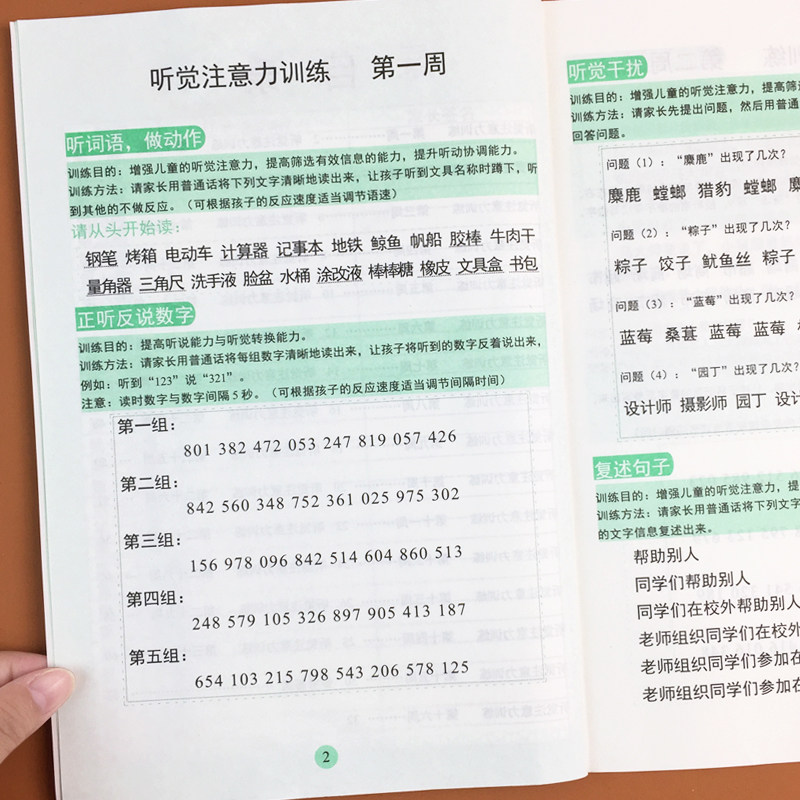 听觉注意力训练 第一周
听词语，做动作
训练目的：增强儿童的听觉注意力，提高筛选有效信息的能力，提升听动协调能力。
训练方法：请家长用普通话将下列文字清晰地读出来，让孩子听到文具名称时蹲下，听
到其他的不做反应。（可根据孩子的反应速度适当调节语速）
请从头开始读：
钢笔 烤箱 电动车 计算器 记事本 地铁 鲸鱼 帆船 胶棒 牛肉干
量角器 三角尺 洗手液 脸盆 水桶 涂改液 棒棒糖 橡皮 文具盒 书包
正听反说数字
训练目的：提高听说能力与听觉转换能力。
训练方法：请家长用普通话将每组数字清晰地读出来，让孩子将听到的数字反着说出来，
例如：听到“123”说“321”。
注意：读时数字与数字间隔 5 秒。（可根据孩子的反应速度适当调节间隔时间）
第一组：
801 382 472 053 247 819 057 426
第二组：
842 560 348 752 361 025 975 302
第三组：
156 978 096 842 514 604 860 513
第四组：
248 579 105 326 897 905 413 187
第五组：
654 103 215 798 543 206 578 125
2
听觉干扰
训练目的：增强儿童的听觉注意力，提高筛选
训练方法：请家长先提出问题，然后用普通
回答问题。
问题（1）：“麋鹿”出现了几次？
麋鹿 螳螂 猎豹 螳螂
问题（2）：“粽子”出现了几次？
粽子 饺子 鱿鱼丝 粽子
问题（3）：“蓝莓”出现了几次？
蓝莓 桑葚 蓝莓 蓝莓
问题（4）：“园丁”出现了几次？
设计师 摄影师 园丁 设计
复述句子
训练目的：增强儿童的听觉注意力，提
训练方法：请家长用普通话将下列文字
的文字信息复述出来。
帮助别人
同学们帮助别人
同学们在校外帮助别人
老师组织同学们在校外
老师组织同学们参加在
老师组织同学们参加在